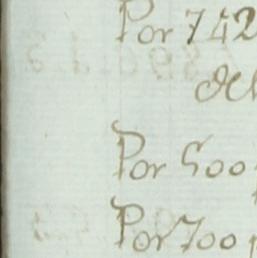 Por 742
del
Por 500
Por 700 p